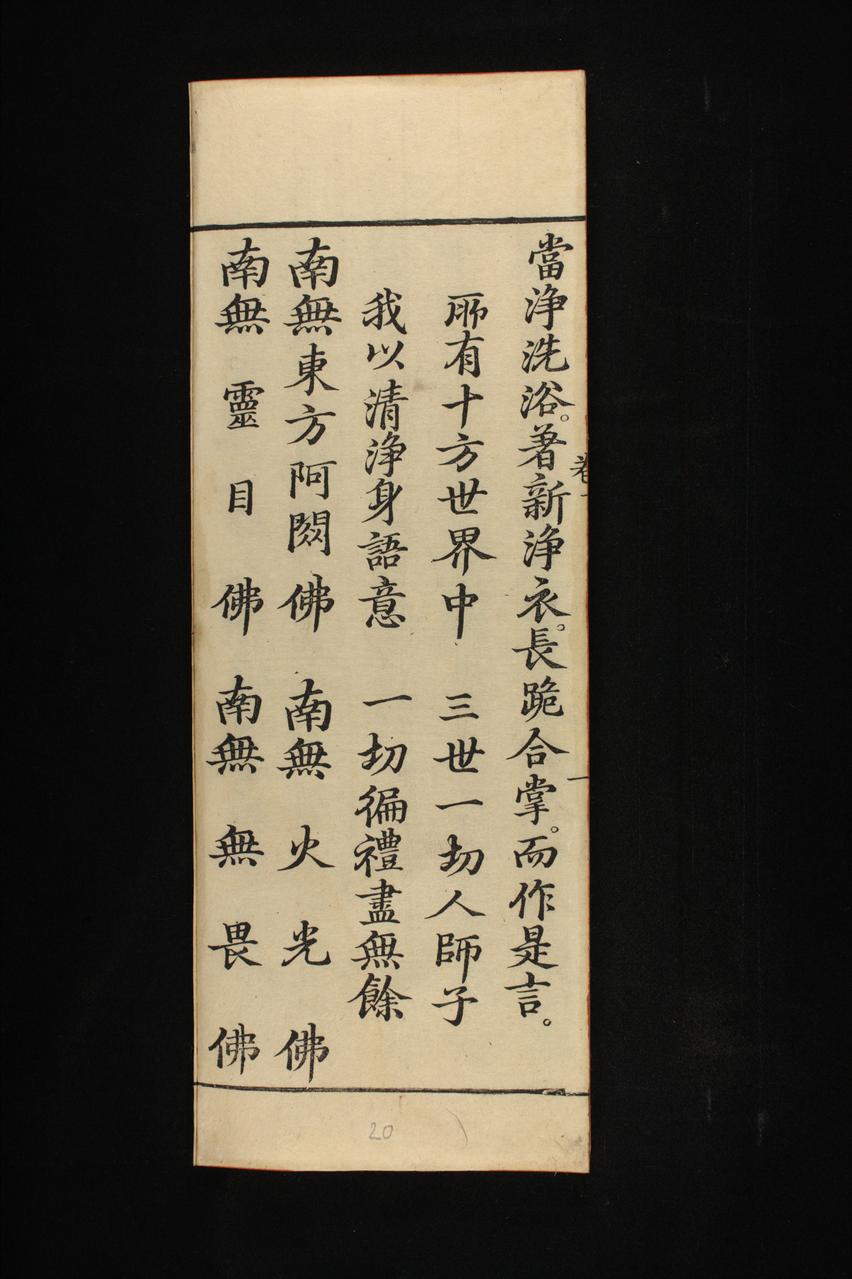 當淨洗浴。著新淨衣。長跪合掌。而作是言。
所有十方世界中　三世一切人師子
我以清淨身語意　一切徧禮盡無餘
南無東方阿閦佛　南無火光佛
南無靈目佛　南無無畏佛
卷一
一
20